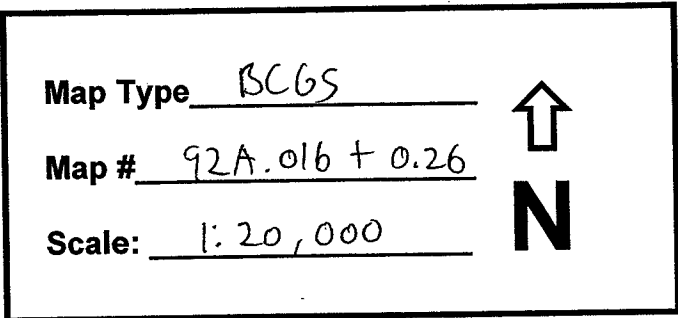 Map Type BCGS
Map # 92A.016 + 0.26
Scale: 1:20,000
N